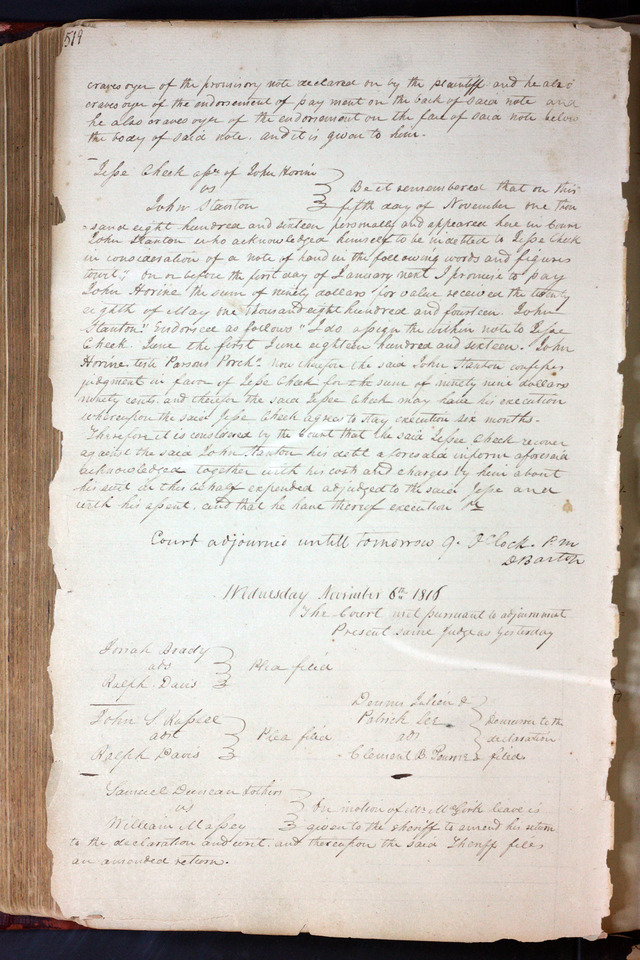 519
craves oyer of the promissory note declared on by the plaintiff and he also
craves oyer of the endorsement of payment on the back of said note and
he also craves oyer of the endorsement on the face of said note below
the body of said note. and it is given to him.
Jesse Cheek assee of John Horine
vs
John Stanton
Be it remembered that on this
fifth day of November one thou
sand eight hundred and sixteen personally and appeared here in Court
John Stanton who acknowledged himself to be indebted to Jesse Cheek
in consideration of a note of hand in the following words and figures
towit," on or before the first day of January next I promise to pay
John Horine the sum of ninety dollars for value received the twenty
eighth of May one thousand eight hundred and fourteen. John
Stanton" Endorsed as follows "I do assign the within note to Jesse
Cheek. June the first June eighteen hundred and sixteen. John
Horine. teste Parsons now therefore the said John Stanton confesses
judgment in favor of Jesse Cheek for the sum of ninety nine dollars
ninety cents. and therefor the said Jesse Cheek may have his execution
whereupon the said Jesse Cheek agrees to stay execution six months.
Therefore it is considered by the Court that the said Jesse Cheek recover
against the said John Stanton his debt aforesaid in form aforesaid
acknowledged together with his cost and charges by him about
his suit in this behalf expended adjudged to the said Jesse and
with his assent. and that he have thereof execution &c
Court adjourned untill tomorrow 9. OClock. P.M
D Barton
Wednesday November 6th 1816
The Court met pursuant to adjournment
Present same Judge as Yesterday
Jonah Brady
ads
Ralph Davis
Plea filed
John S. Russell
ads
Ralph Davis
Plea filed
Dennis Julien &
Patrick Lee
ads
Clement B
Demurrer to the
declaration
filed
Samuel Duncan & others
vs
William Massey
On motion of Mr McGirk leave is
given to the sheriff to amend his return
to the declaration and writ. and thereupon the said Sheriff files
an amended return.